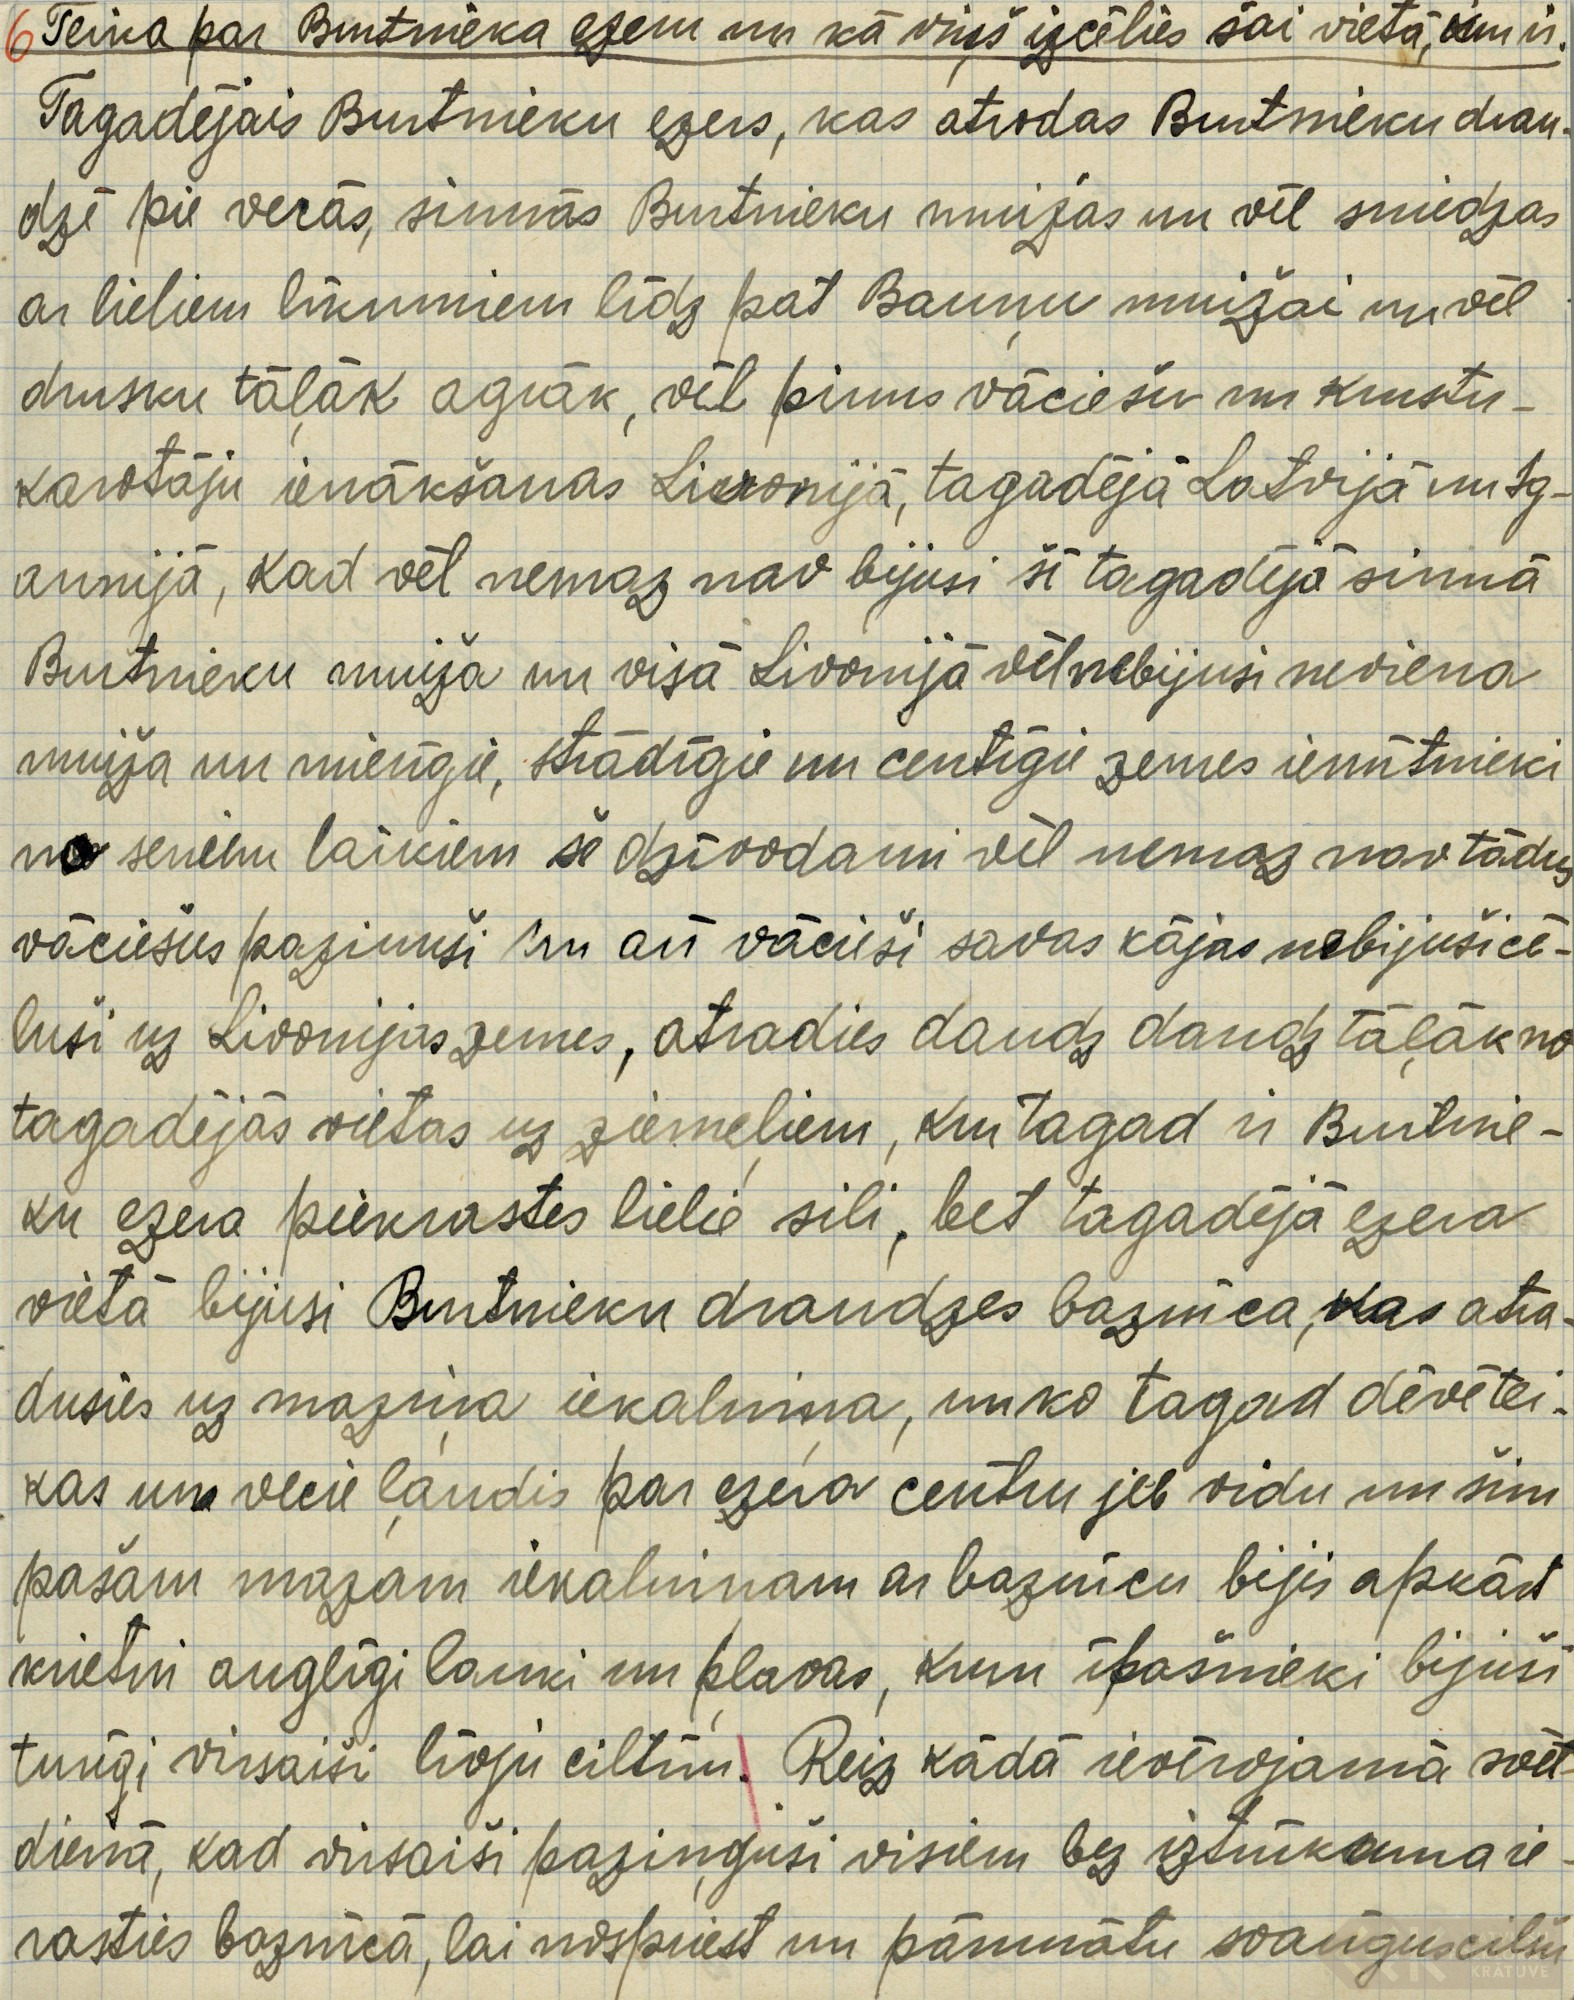 6 Teika par Burtnieka ezeru un kā viņš izcēlies šai vietā, kur ir.
Tagadējais Burtnieku ezers, kas atrodas Burtnieku drau-
dzē pie vecās, sirmās Burtnieku muižas un vēl sniedzas
ar lieliem līkumiem līdz pat Bauņu muižai un vēl
drusku tāļāk agrāk, vēl pirms vāciešu un krustu-
karotāju ienākšanas Livonijā, tagadējā Latvijā un Ig-
aunijā, kad vēl nemaz nav bijusi šī tagadējā sirmā
Burtnieku muiža un visā Livonijā vēl nebijusi neviena
muiža un mierīgie, strādīgie un centīgie zemes iemītnieki
no seniem laikiem še dzīvodami vēl nemaz nav tādus
vāciešus pazinuši un arī vācieši savas kājas nebijuši cē-
luši uz Livonijas zemes, atradies daudz daudz tāļāk no
tagadējās vietas uz ziemeļiem, kur tagad ir Burtnie-
ku ezera piekrastes lielie sili, bet tagadējā ezera
vietā bijusi Burtnieku draudzes baznīca, kas atra-
dusies uz maziņa iekalniņa, un ko tagad dēvē tei-
kas un vecie ļaudis par ezera centru jeb vidu un šim
pašam mazam iekalniņam ar baznīcu bijis apkārt
krietni auglīgi lauki un pļavas, kuru īpašnieki bijuši
turīgi virsaiši līvju ciltīm. Reiz kādā ievērojamā svēt-
dienā, kad virsaiši paziņojuši visiem bez iztrūkuma ie-
rasties baznīcā, lai nospriest un pārrunātu svarīgus cilšu
KRĀTUVE